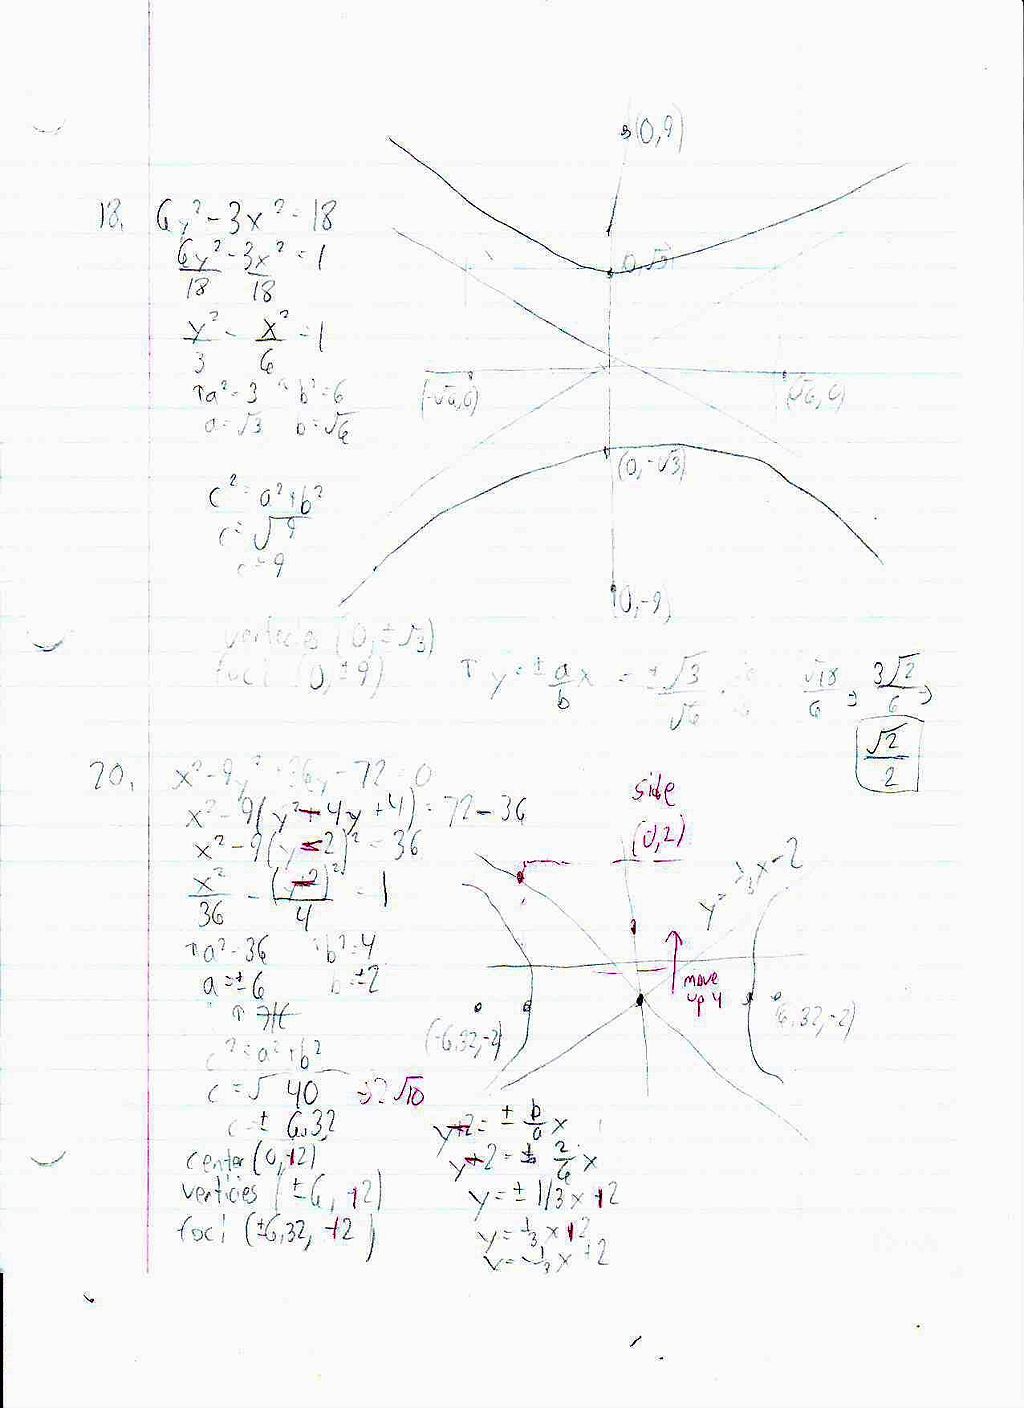 (0,9)
18. 6y² - 3x² = 18
6y²/18 - 3x²/18 = 1
(0,√3)
y²/3 - x²/6 = 1
↑a² = 3 b² = 6
a = √3 b = √6
(-√6,0)
(√6,0)
(0,-√3)
c² = a² + b²
c = √9
c = 9
(0,-9)
verticies (0, ±√3)
foci (0, ±9)
↑ y = ± a/b x = ± √3/√6
√18/6 → 3√2/6 →
√2/2
20. x² - 9y² + 36y - 72 = 0
x² - 9(y² + 4y + 4) = 72 - 36
x² - 9(y - 2)² = 36
x²/36 - (y-2)²/4 = 1
↑a² = 36 b² = 4
a = ±6 b = ±2
c² = a² + b²
c = √40 = 2√10
c = ± 6.32
center (0, +2)
verticies (±6, +2)
foci (±6.32, +2)
side
(0,2)
y = 1/3x - 2
move
up 4
(-6.32,-2)
(6.32,-2)
y+2 = ± b/a x
y+2 = ± 2/6 x
y = ± 1/3x +2
y = 1/3 x +2
y = -1/3 x +2